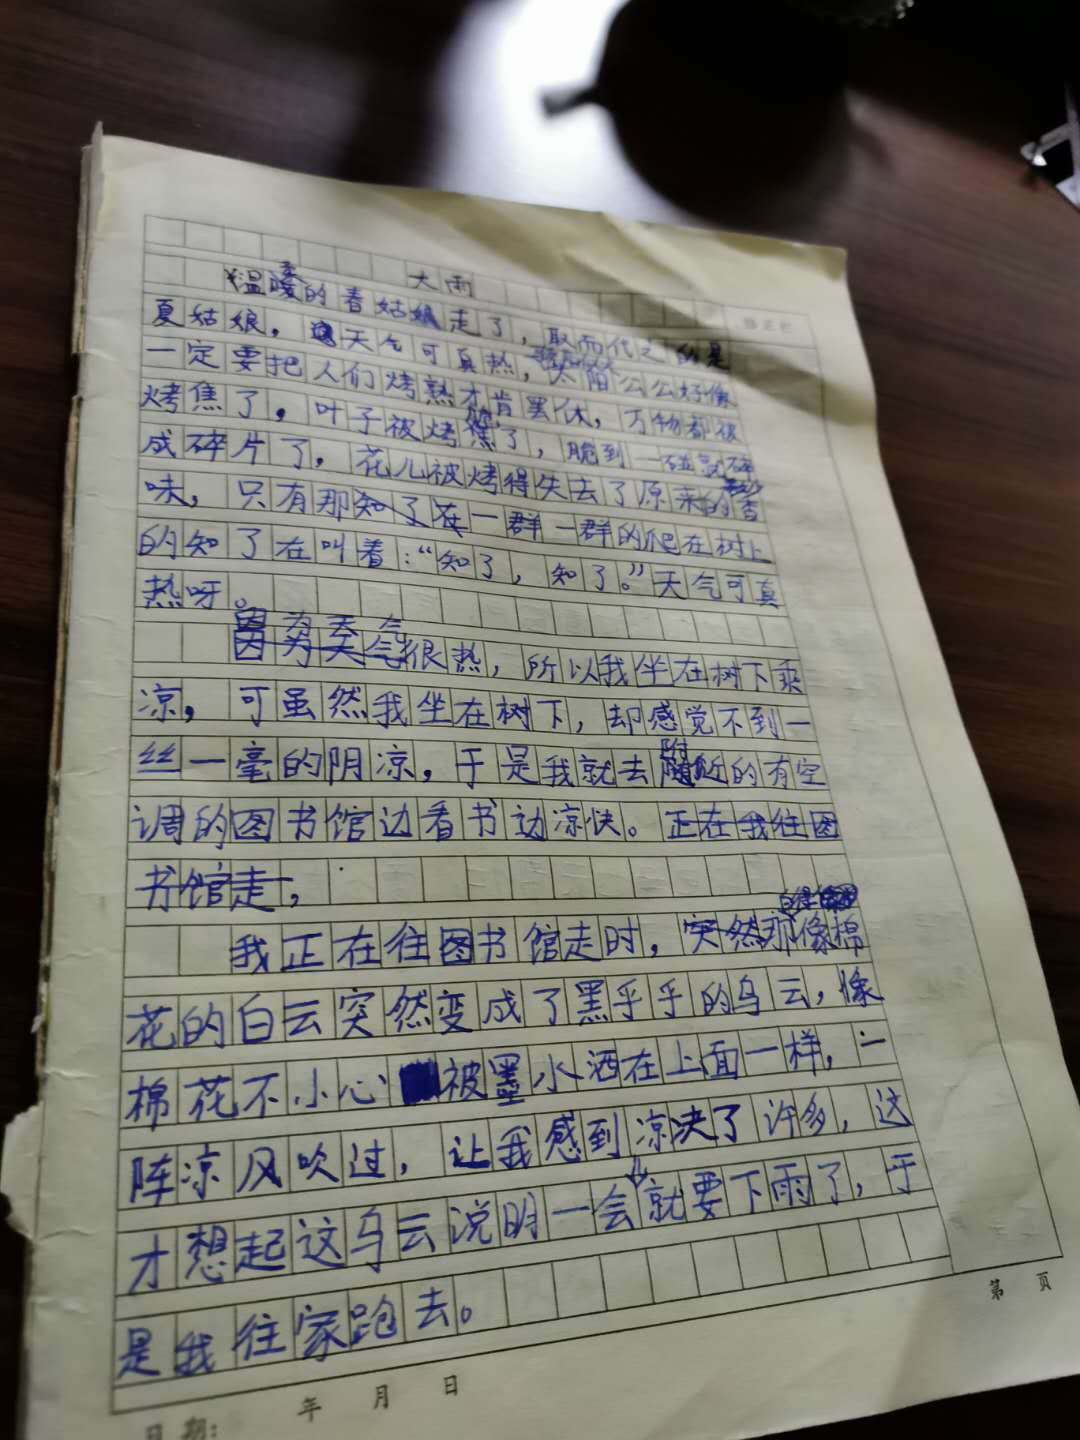 大雨
温暖的春姑娘走了，取而代之的是
夏姑娘，天气可真热，太阳公公好像
一定要把人们烤熟才肯罢休，万物都被
烤焦了，叶子被烤焦了，脆到一碰就碎
成碎片了，花儿被烤得失去了原来的香
味，只有那知了在一群一群的爬在树上
的知了在叫着：“知了，知了。”天气可真
热呀。
因为天气
因为天气很热，所以我坐在树下乘
凉，可虽然我坐在树下，却感觉不到一
丝一毫的阴凉，于是我就去附近的有空
调的图书馆边看书边凉快。正在我往图
书馆走，
我正在往图书馆走时，突然那像棉
花的白云突然变成了黑乎乎的乌云，像
棉花不小心被墨水洒在上面一样，一
阵凉风吹过，让我感到凉决了许多，这
才想起这乌云说明一会儿就要下雨了，于
是我往家跑去。
第 页
日期： 年 月 日